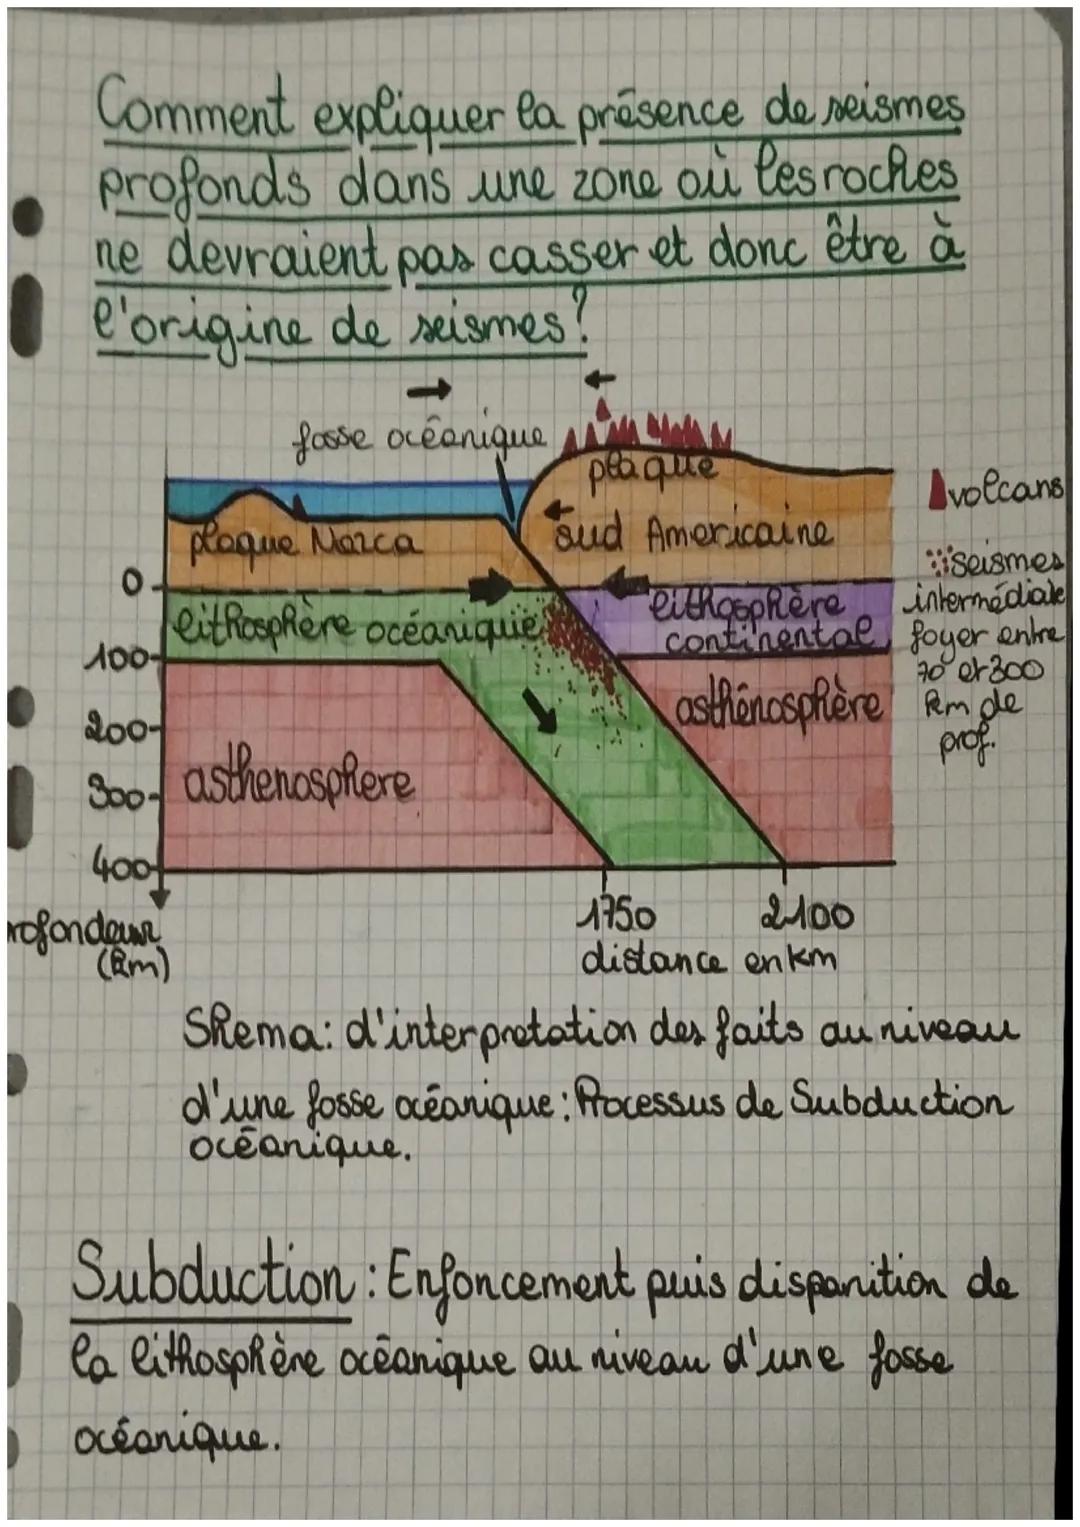 Comment expliquer la présence de seismes
profonds dans une zone où les roches
ne devraient pas casser et donc être à
l'origine de seismes?
fosse océanique
plaque
sud Americaine
plaque Nazca
volcans
seismes
intermédiaie
foyer entre
70 et 300
km de
prof.
0
lithosphère océanique
lithosphère
continental
100
200
asthénosphère
300
asthenosphere
400
rofondeur
(km)
1750
2100
distance en km
Shema: d'interpretation des faits au niveau
d'une fosse océanique: Processus de Subduction
océanique.
Subduction: Enfoncement puis disparition de
la lithosphère océanique au niveau d'une fosse
océanique.